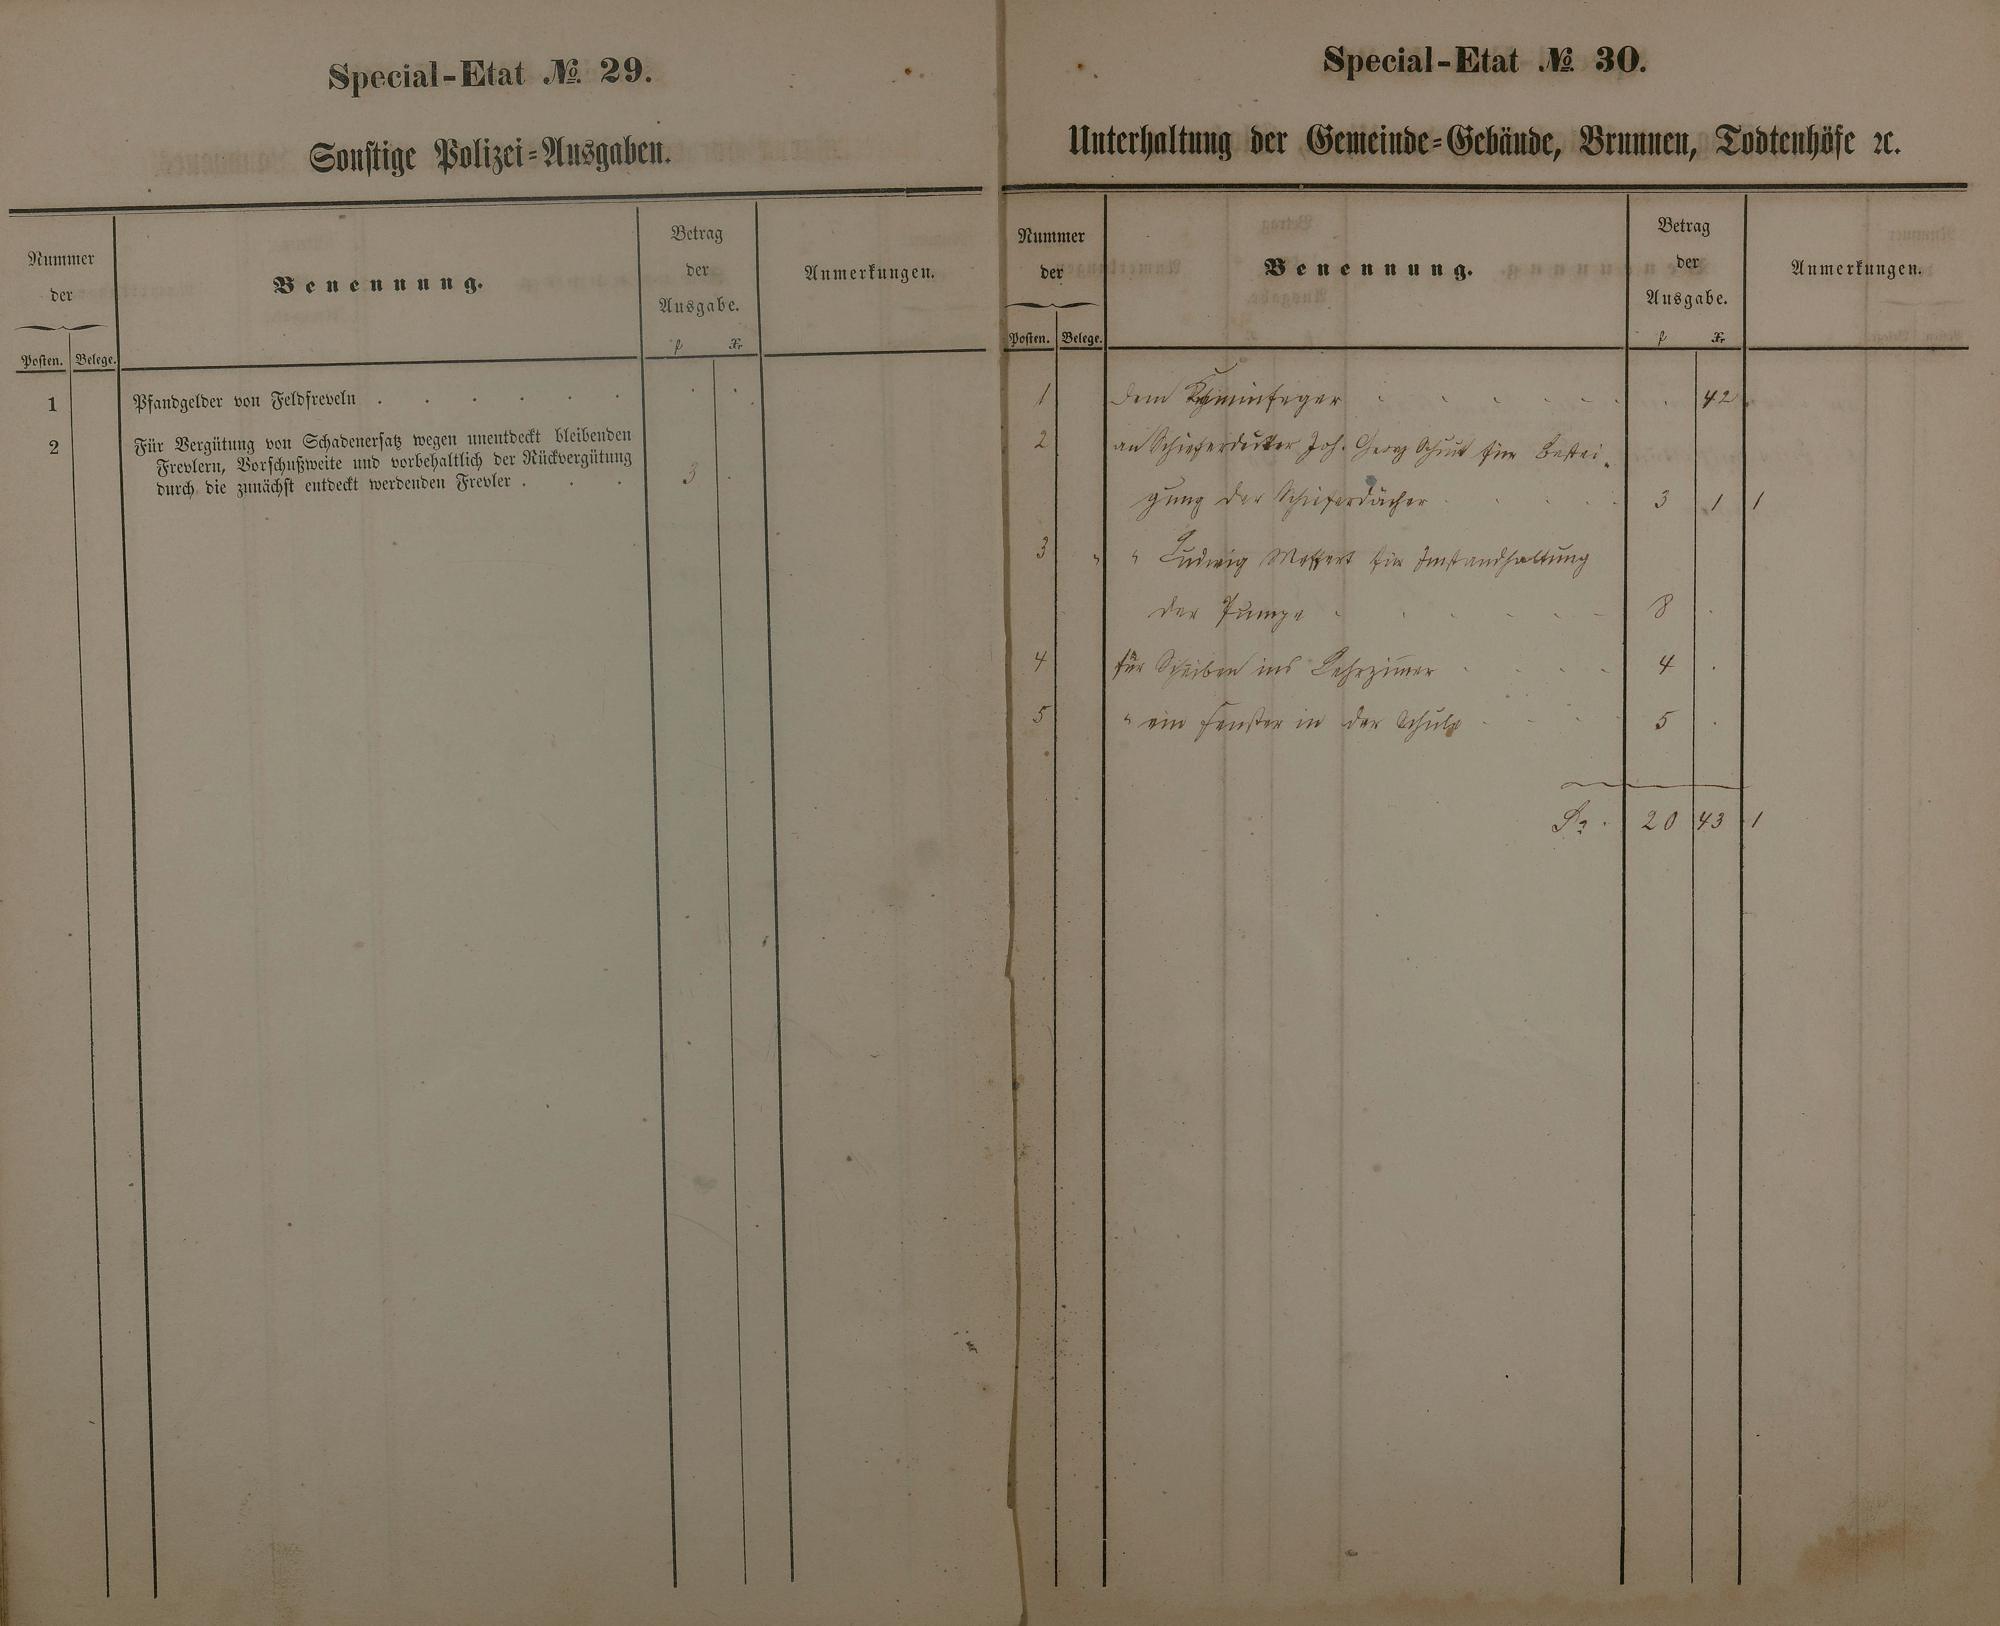 Special-Etat № 29.
Sonstige Polizei-Ausgaben.
Nummer
der
Posten. Belege.
Benennung.
Betrag
der
Ausgabe.
f Xr
Anmerkungen.
1 Pfandgelder von Feldfreveln . . . . . . . .
2 Für Vergütung von Schadenersatz wegen unentdeckt bleibenden
Frevlern, Vorschußweite und vorbehaltlich der Rückvergütung
durch die zunächst entdeckt werdenden Frevler . . . 3 .
Special-Etat № 30.
Unterhaltung der Gemeinde-Gebäude, Brunnen, Todtenhöfe ꝛc.
Nummer
der
Posten. Belege.
Benennung.
Betrag
der
Ausgabe.
f Xr
Anmerkungen.
1 dem Kaminfeger . . . . . . . . 42
2 an Schieferdecker Joh. Georg für Bestei-
gung der Schieferdächer . . . . 3 1 1
3 " " Ludwig für Instandhaltung
der Pumpe . . . . . . 8 .
4 für Scheiben ins Lehrzimmer . . . . 4 .
5 " ein Fenster in der Schule . . . . 5 .
Sa. 20 43 1